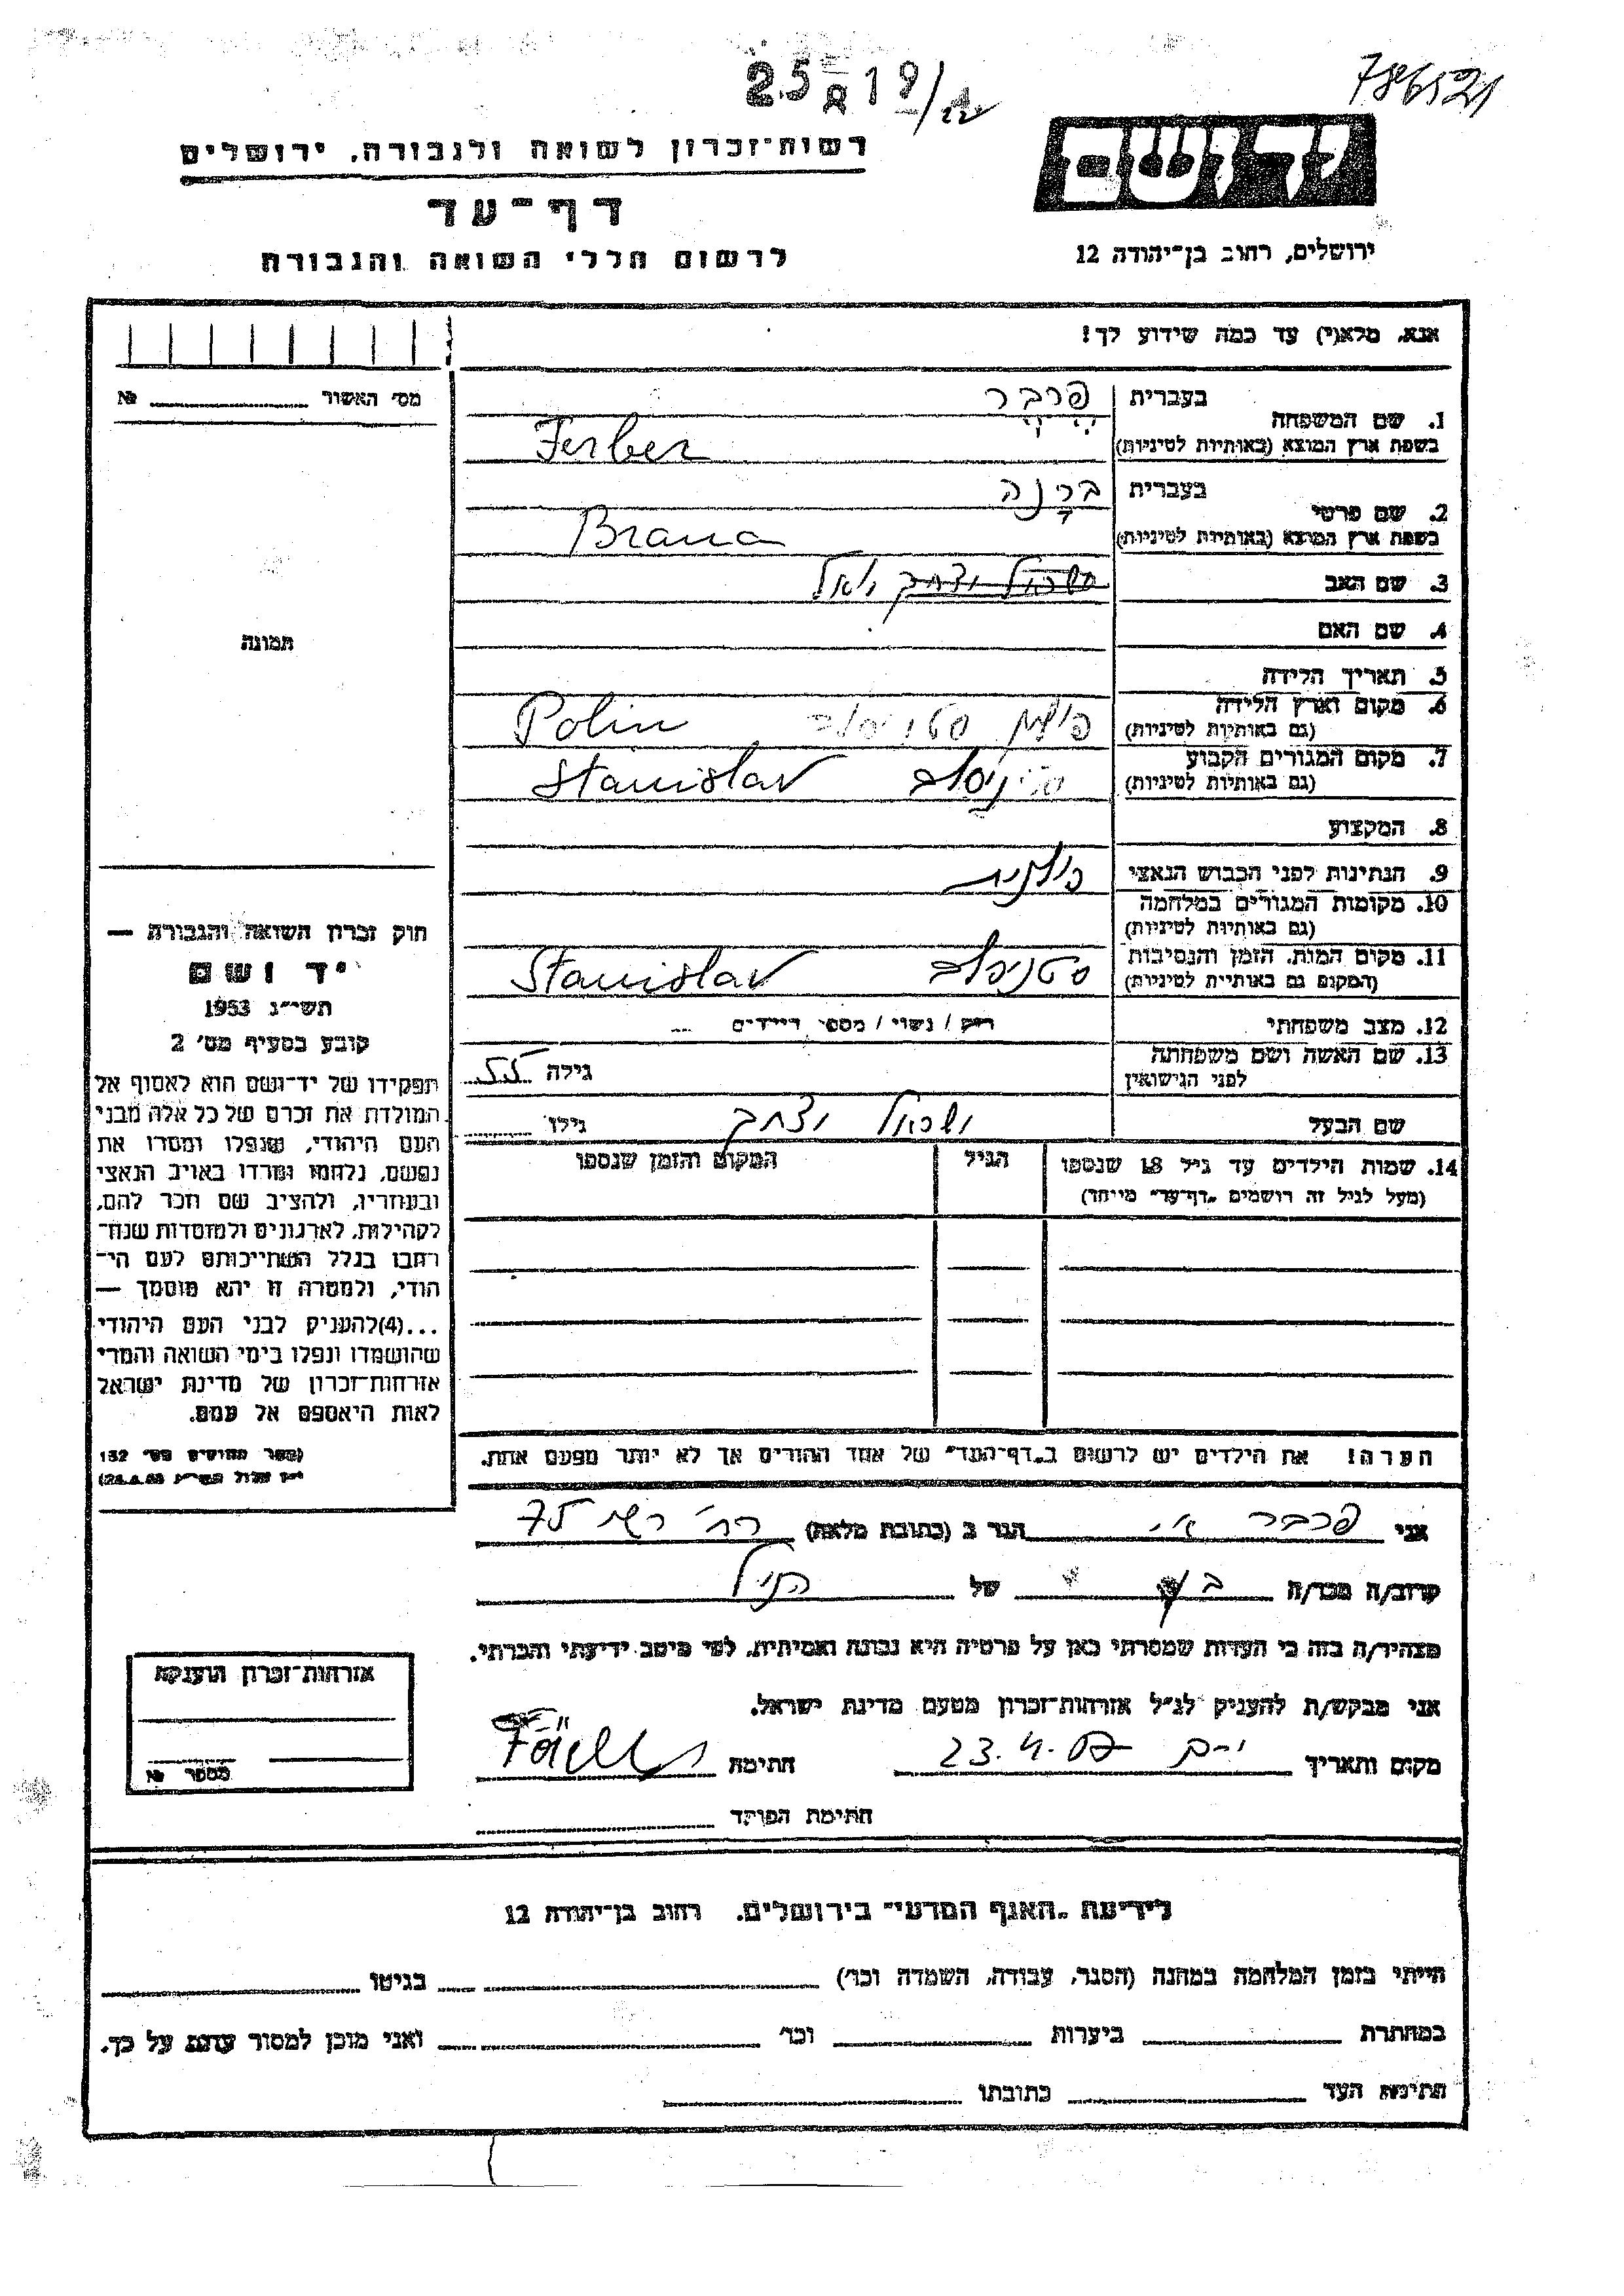 786521
25819/
יד ושם
רשות־זכרון לשואה ולגבורה, ירושלים
דף־עד
לרשום חללי השואה והגבורה
ירושלים, רחוב בן־יהודה 12
אנא, מלא(י) עד כמה שידוע לך!
מס׳ האשור № 
1. שם המשפחה
בעברית פרבר
בשפת ארץ המוצא (באותיות לטיניות) Ferber
2. שם פרטי
בעברית ברנה
בשפת ארץ המוצא (באותיות לטיניות) Brana
3. שם האב
4. שם האם
תמונה
5. תאריך הלידה
6. מקום וארץ הלידה
(גם באותיות לטיניות) פולין Polin
7. מקום המגורים הקבוע
(גם באותיות לטיניות) Stanislav
8. המקצוע
9. הנתינות לפני הכבוש הנאצי פולנית
10. מקומות המגורים במלחמה
(גם באותיות לטיניות)
11. מקום המות, הזמן והנסיבות
(המקום גם באותיות לטיניות) סטניסלב Stanislav
12. מצב משפחתי רווק / נשוי / מספר ילדים
13. שם האשה ושם משפחתה
לפני הנישואין גילה 55
שם הבעל יצחק גילו
14. שמות הילדים עד גיל 18 שנספו
(מעל לגיל זה רושמים „דף־עד״ מיוחד)
הגיל
המקום והזמן שנספו
הערה! את הילדים יש לרשום ב„דף־העד״ של אחד ההורים אך לא יותר מפעם אחת.
חוק זכרון השואה והגבורה —
יד ושם
תשי״ג 1953
קובע בסעיף מס׳ 2
תפקידו של יד־ושם הוא לאסוף אל
המולדת את זכרם של כל אלה מבני
העם היהודי, שנפלו ומסרו את
נפשם, נלחמו ומרדו באויב הנאצי
ובעוזריו, ולהציב שם וזכר להם,
לקהילות, לארגונים ולמוסדות שנח־
רבו בגלל השתייכותם לעם הי־
הודי, ולמטרה זו יהא מוסמך —
...(4)להעניק לבני העם היהודי
שהושמדו ונפלו בימי השואה והמרי
אזרחות־זכרון של מדינת ישראל
לאות היאספם אל עמם.
(ספר החוקים מס׳ 132
אני פרבר הגר ב (כתובת מלאה) רח׳ רשי 75
קרוב/ה מכר/ה בן של הנ״ל
מצהיר/ה בזה כי העדות שמסרתי כאן על פרטיה היא נכונה ואמיתית, לפי מיטב ידיעתי והכרתי.
אני מבקש/ת להעניק לנ״ל אזרחות־זכרון מטעם מדינת ישראל.
מקום ותאריך חתימה
חתימת הפוקד
אזרחות־זכרון הוענקה
מספר №
לידיעת „האגף המדעי״ בירושלים, רחוב בן־יהודה 12
הייתי בזמן המלחמה במחנה (הסגר, עבודה, השמדה וכו׳) בגיטו
במחתרת ביערות וכו׳ ואני מוכן למסור עדות על כך.
חתימת העד כתובתו